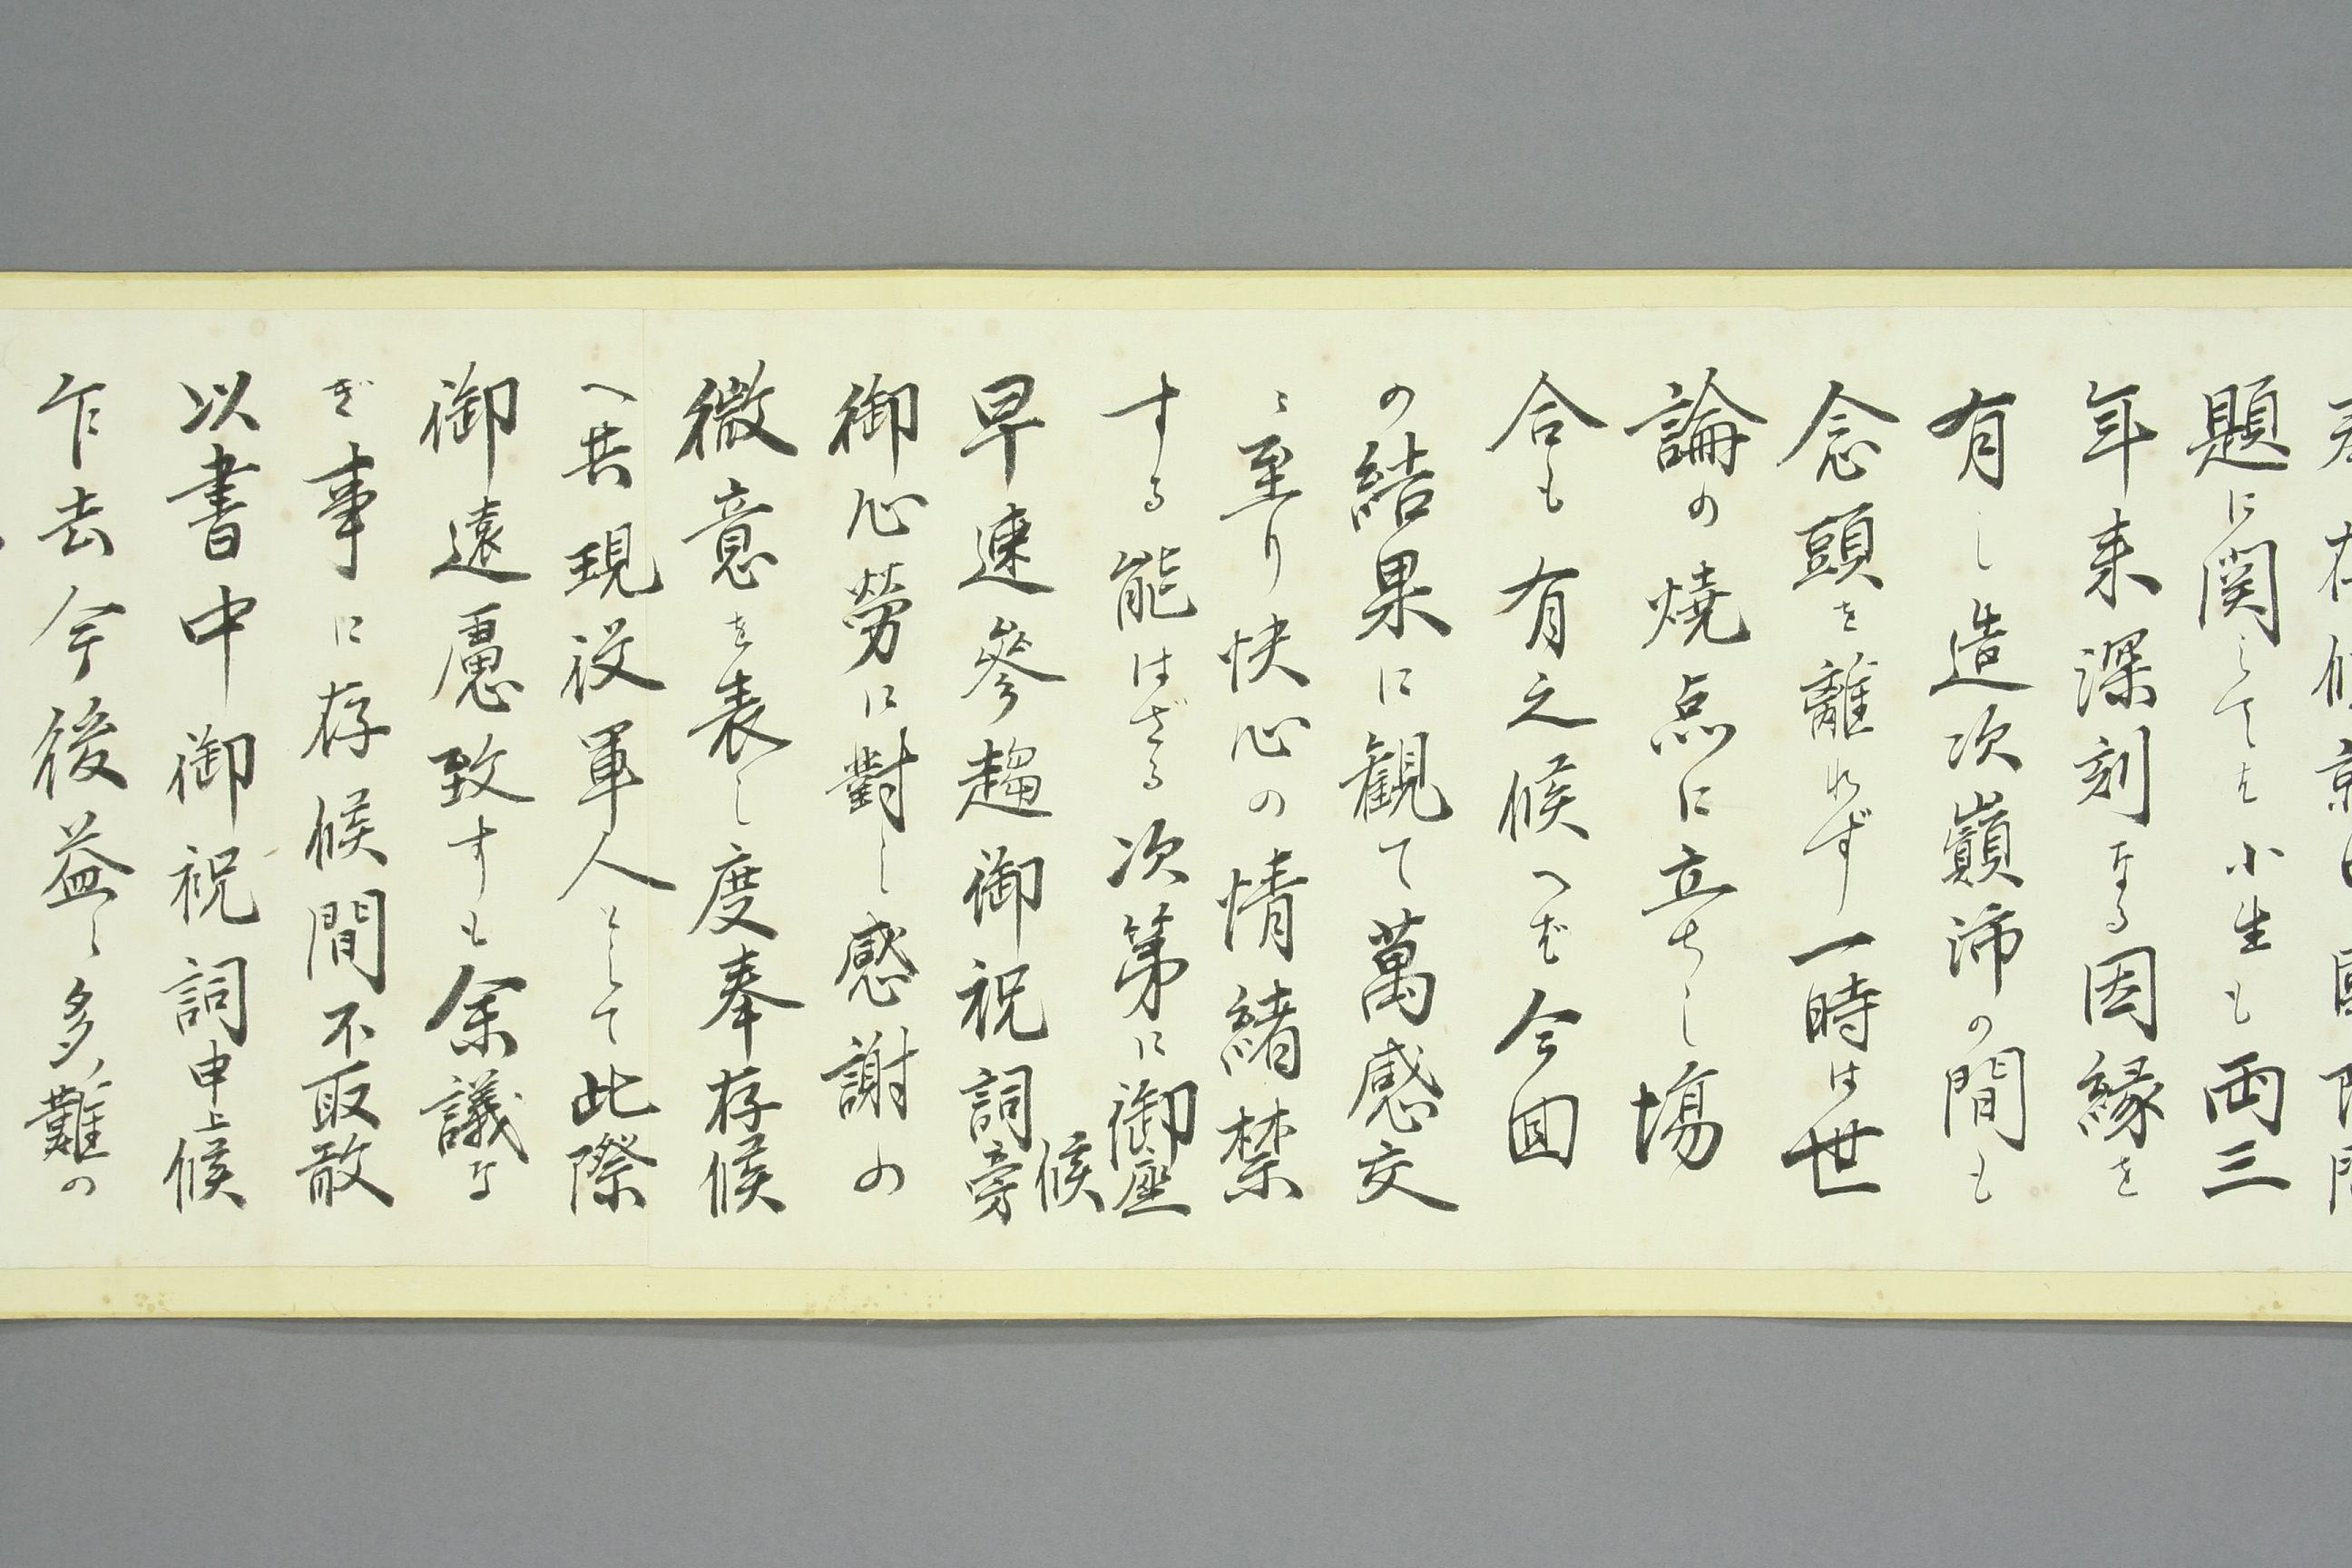 題に関しては小生も両三
年来深刻なる因縁を
有し造次巓沛の間も
念頭を離れず一時は世
論の焼点に立ちし場
合も有之候へば今回
の結果に観て萬感交
〻至り快心の情緒禁
する能はざる次第に御座候
早速参趨御祝詞旁
御心勞に對し感謝の
微意を表し度奉存候
へ共現役軍人として此際
御遠慮致すも余議な
き事に存候間不取敢
以書中御祝詞申上候
乍去今後益〻多難の